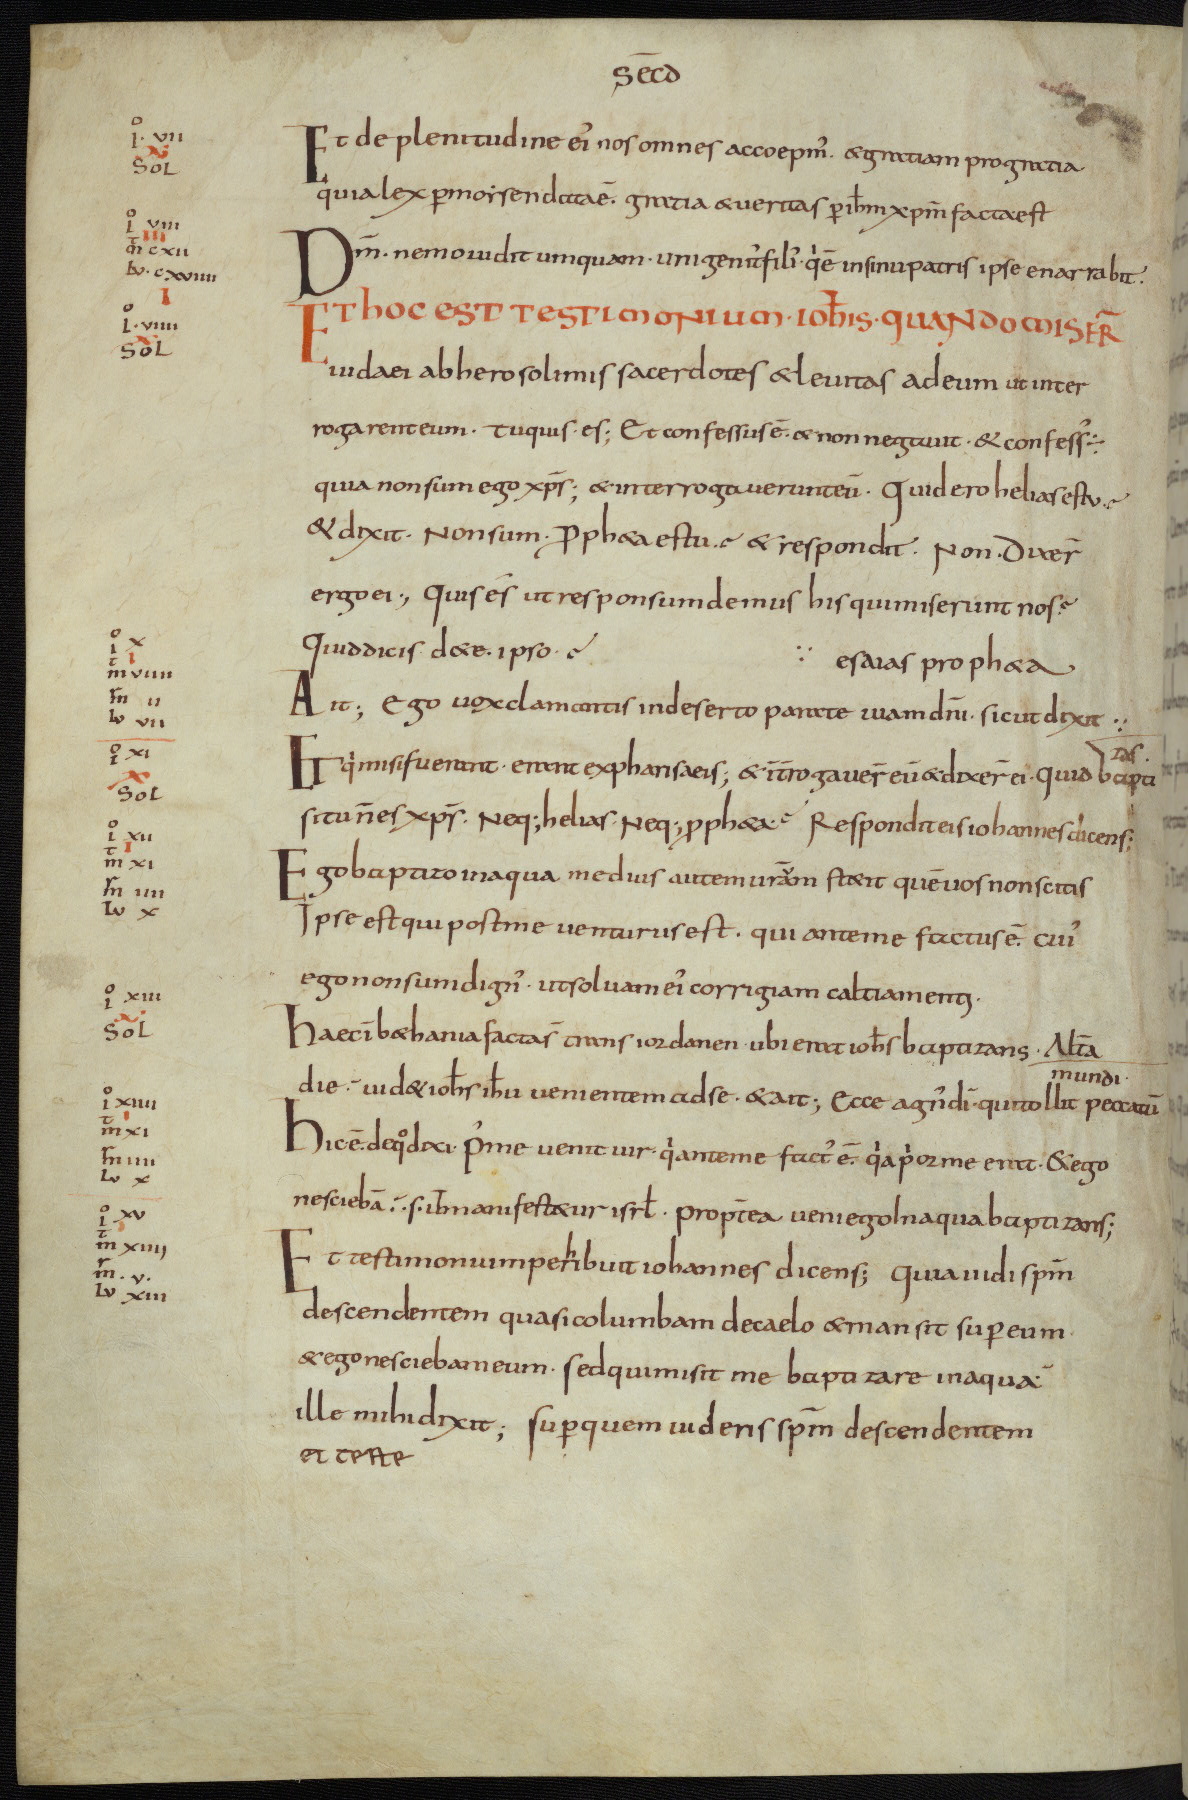 SEC̄D
Et de plenitudine ei᾽ nos omnes accoepim᾽. & gratiam pro gratia
quia lex p̱ moisen data ē. gratia & veritas p̱ ih̅m xp̅m facta est
Dm̅. nemo vidit umquam. unigenit᾽ fili᾽. q̍ ē in sinu patris ipse enarrabit.
ET hOC EST TESTIMONIUM. IOh̅IS. QUANDO MISER̅
iudaei ab herosolimis sacerdotes & levitas ad eum ut inter
rogarent eum. Tu quis es; Et confessus ē. & non negavit. & confess᾽ ÷
quia non sum ego xp̅s; & interrogaverunt eū. Quid ero helias es tu?
& dixit. Non sum. P̱ph&a es tu? & respondit. Non. Dixer̅
ergo ei., Quis es ut responsum demus his qui miserunt nos?
Quid dicis de te ipso?
∵ esaias proph&a
Ait; Ego vox clamantis in deserto parate viam dn̅i. sicut dixit ∵
Et q̍ misi fuerant. erant ex pharisaeis; & īt̄rogaver̅ eū & dixer̅ ei. quid bapti
zas.
si tu n̄ es xp̅s. Neq; helias. Neq; p̱ph&a? Respondit eis iohannes dicens;
Ego baptizo in aqua medius autem vr̅m st&it quē vos non scitis
Ipse est qui post me venturus est. qui ante me factus ē. cui᾽
ego non sum dign᾽. ut solvam ei᾽ corrigiam caltiamenti.
haec ī b&hania facta s̅ trans iordanen. ubi erat ioh̅s baptizans. Alt̅a
die. vid& ioh̅s ih̅u venientem ad se. & ait; Ecce agn᾽ dī. qui tollit peccatū
mundi.
hic ē. de q̊ dixi. P᾽ me venit vir. q̍ ante me fact᾽ ē. q̍a p̍or me erat. & ego
nesciebā. s. ut manifest&ur isrl̅. propt̅ea veni ego In aqua baptizans;
Et testimonium perhibuit iohannes dicens; Quia vidi sp̅m
descendentem quasi columbam de caelo & mansit sup̱ eum.
& ego nesciebam eum. sed qui misit me baptizare in aqua
ille mihi dixit; sup̱ quem videris sp̅m descendentem
et teste
I. VII
SOL
I VIII
III
m̄ CXII
lv. CXVIIII
I
I. VIIII
SOL
I X
I
m VIIII
m̄ II
lv VII
I XI
X
SOL
I XII
I
m XI
m̄ IIII
lv X
I XIII
SOL
I XIIII
I
m XI
m̄ IIII
lv X
I XV
m XIIII
m̄. V.
lv XIII